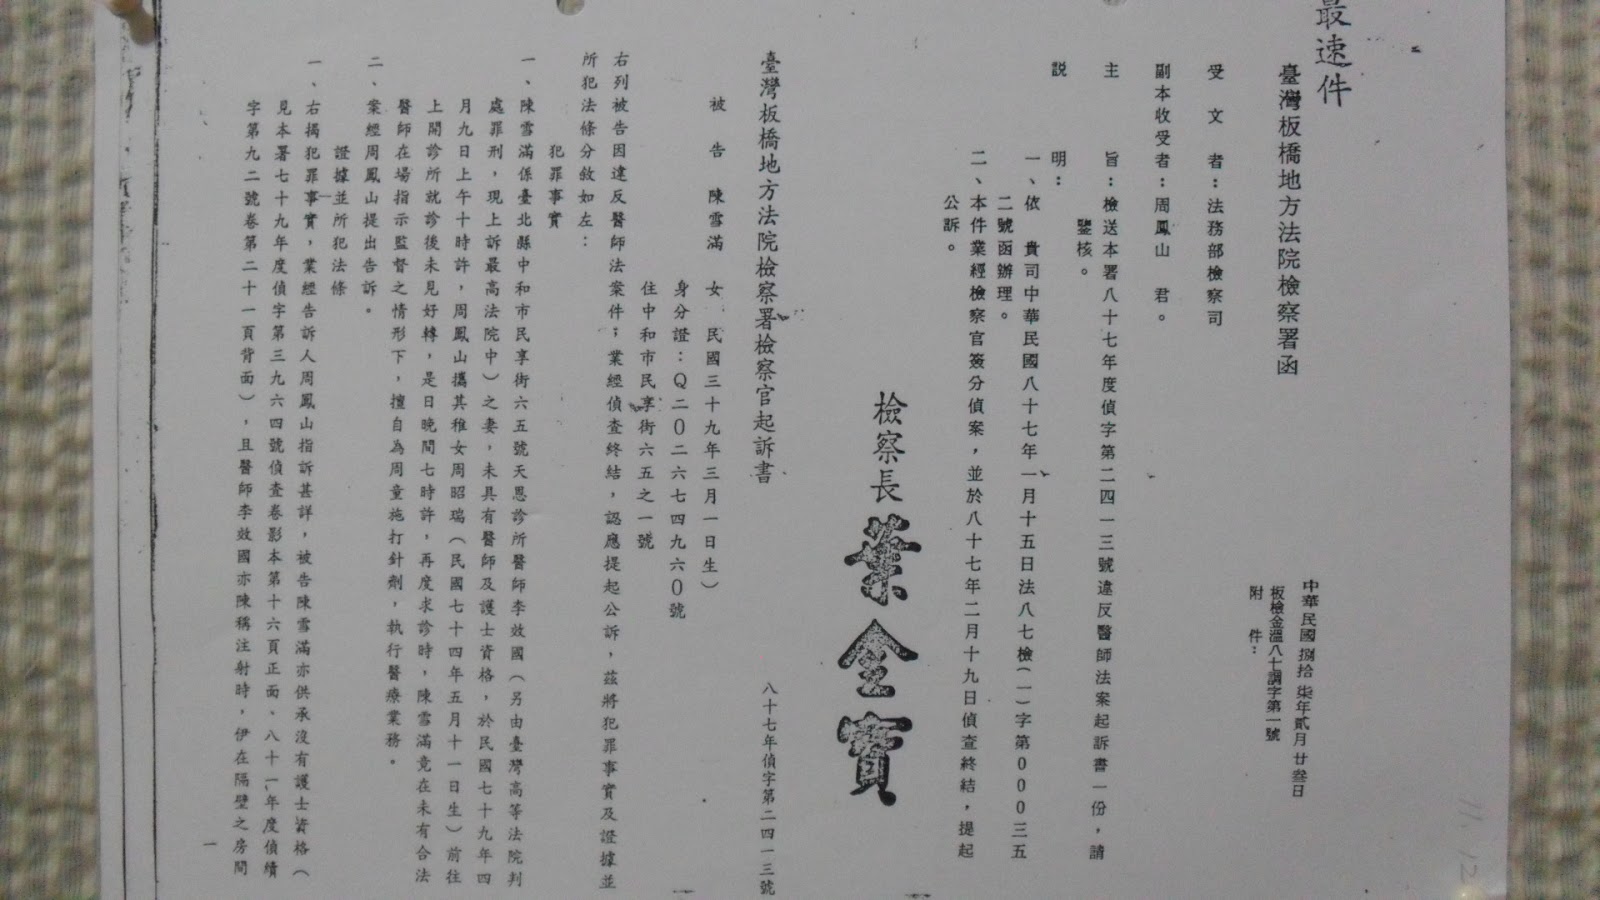 最速件
臺灣板橋地方法院檢察署函
中華民國捌拾柒年貳月廿叁日
板檢金溫八十調字第一號
附件：
受文者：法務部檢察司
副本收受者：周鳳山 君。
主旨：檢送本署八十七年度偵字第二四一三號違反醫師法案起訴書一份，請
鑒核。
說明：
一、依 貴司中華民國八十七年一月十五日法八七檢(一)字第000三五
二號函辦理。
二、本件業經檢察官簽分偵案，並於八十七年二月十九日偵查終結，提起
公訴。
檢察長 葉金寶
臺灣板橋地方法院檢察署檢察官起訴書
八十七年偵字第二四一三號
被告 陳雪滿 女 民國三十九年三月一日生)
身分證：Q二0二六七四九六0號
住中和市民享街六五之一號
右列被告因違反醫師法案件；業經偵查終結，認應提起公訴，茲將犯罪事實及證據並
所犯法條分敘如左：
犯罪事實
一、陳雪滿係臺北縣中和市民享街六五號天恩診所醫師李效國(另由臺灣高等法院判
處罪刑，現上訴最高法院中)之妻，未具有醫師及護士資格，於民國七十九年四
月九日上午十時許，周鳳山攜其稚女周昭瑞(民國七十四年五月十一日生)前往
上開診所就診後未見好轉，是日晚間七時許，再度求診時，陳雪滿竟在未有合法
醫師在場指示監督之情形下，擅自為周童施打針劑，執行醫療業務。
二、案經周鳳山提出告訴。
證據並所犯法條
一、右揭犯罪事實，業經告訴人周鳳山指訴甚詳，被告陳雪滿亦供承沒有護士資格(
見本署七十九年度偵字第三九六四號偵查卷影本第十六頁正面、八十一年度偵續
字第九二號卷第二十一頁背面)，且醫師李效國亦陳稱注射時，伊在隔壁之房間
一
11.12